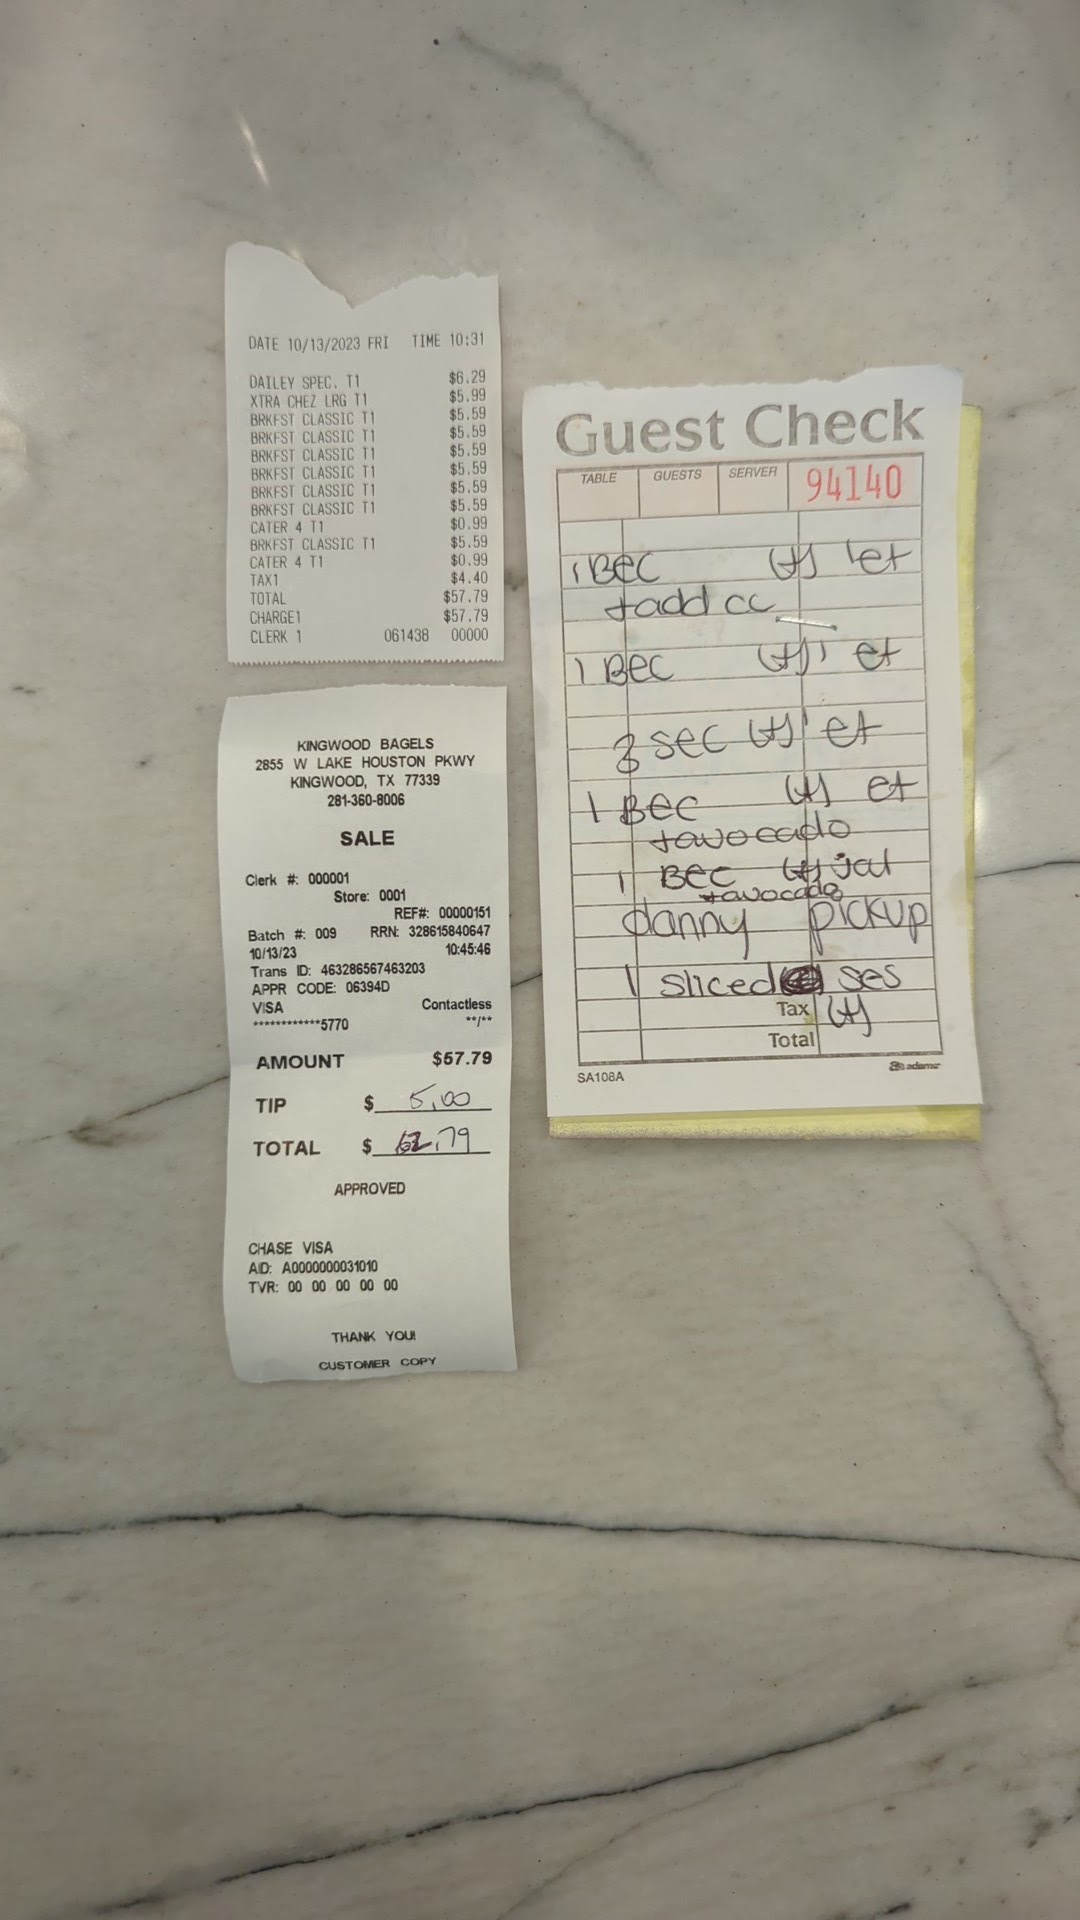 DATE 10/13/2023 FRI TIME 10:31
DAILEY SPEC. T1 $6.29
XTRA CHEZ LRG T1 $5.99
BRKFST CLASSIC T1 $5.59
BRKFST CLASSIC T1 $5.59
BRKFST CLASSIC T1 $5.59
BRKFST CLASSIC T1 $5.59
BRKFST CLASSIC T1 $5.59
BRKFST CLASSIC T1 $5.59
CATER 4 T1 $0.99
BRKFST CLASSIC T1 $5.59
CATER 4 T1 $0.99
TAX1 $4.40
TOTAL $57.79
CHARGE1 $57.79
CLERK 1 061438 00000
KINGWOOD BAGELS
2855 W LAKE HOUSTON PKWY
KINGWOOD, TX 77339
281-360-8006
SALE
Clerk #: 000001
Store: 0001
REF#: 00000151
Batch #: 009 RRN: 328615840647
10/13/23 10:45:46
Trans ID: 463286567463203
APPR CODE: 06394D
VISA Contactless
************5770 **/**
AMOUNT $57.79
TIP $ 5.00
TOTAL $ 62.79
APPROVED
CHASE VISA
AID: A0000000031010
TVR: 00 00 00 00 00
THANK YOU!
CUSTOMER COPY
Guest Check
TABLE GUESTS SERVER 94140
1 BEC et
+add cc
1 BEC et
3 sec et
1 BEC et
+avocado
1 BEC jal
+avocado
danny pickup
1 sliced ses
Tax
Total
SA108A adams